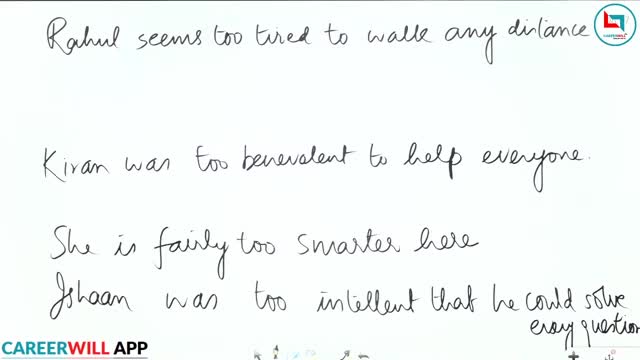 CAREERWILL
Rahul seems too tired to walk any distance
Kiran was too benevalent to help everyone.
She is fairly too smarter here
Ishaan was too intellent that he could solve
every question
CAREERWILL APP